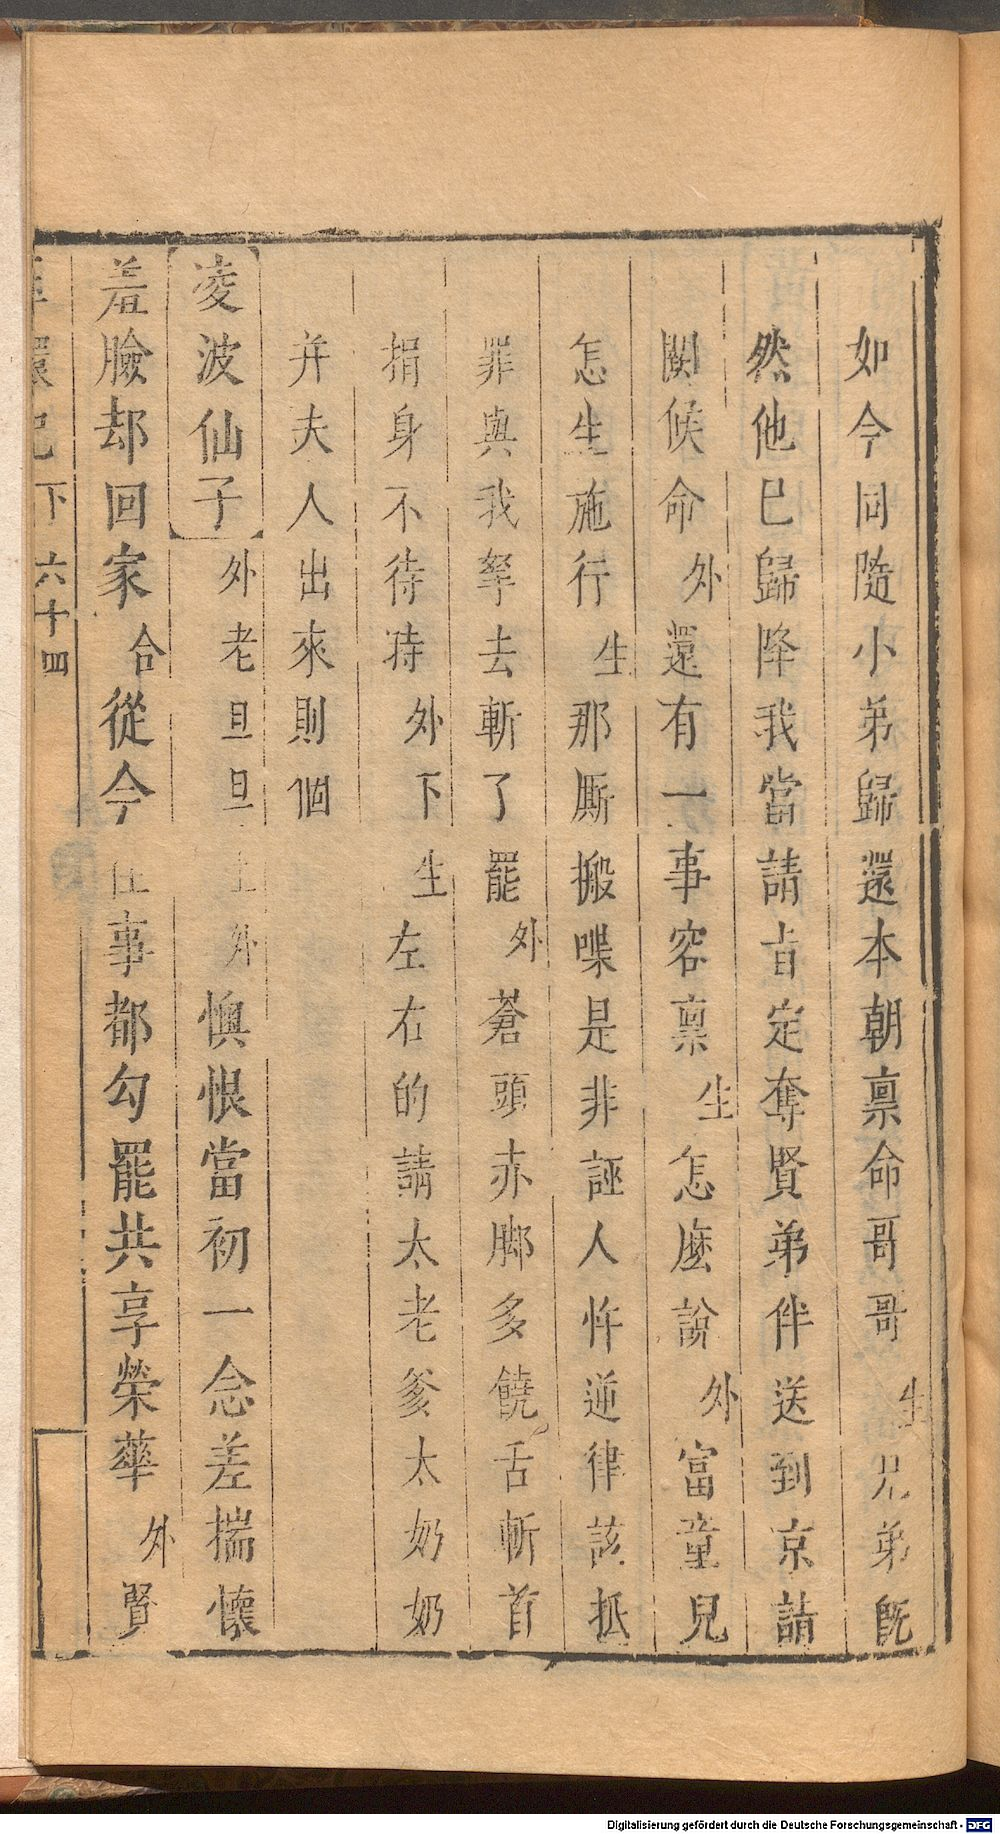 如今同隨小弟歸還本朝稟命哥哥生兄弟既
然他已歸降我當請旨定奪賢弟伴送到京請
闕候命外還有一事容稟生怎麽說外富童兒
怎生施行生那厮搬喋是非誣人忤逆律該抵
罪與我拏去斬了罷外蒼頭赤脚多饒舌斬首
捐身不待時外下生左右的請太老爹太奶奶
并夫人出來則個
凌波仙子外老旦旦上外懊恨當初一念差揣懷
羞臉却回家合從今往事都勾罷共享榮華外賢
還記下 六十四
Digitalisierung gefördert durch die Deutsche Forschungsgemeinschaft - DFG